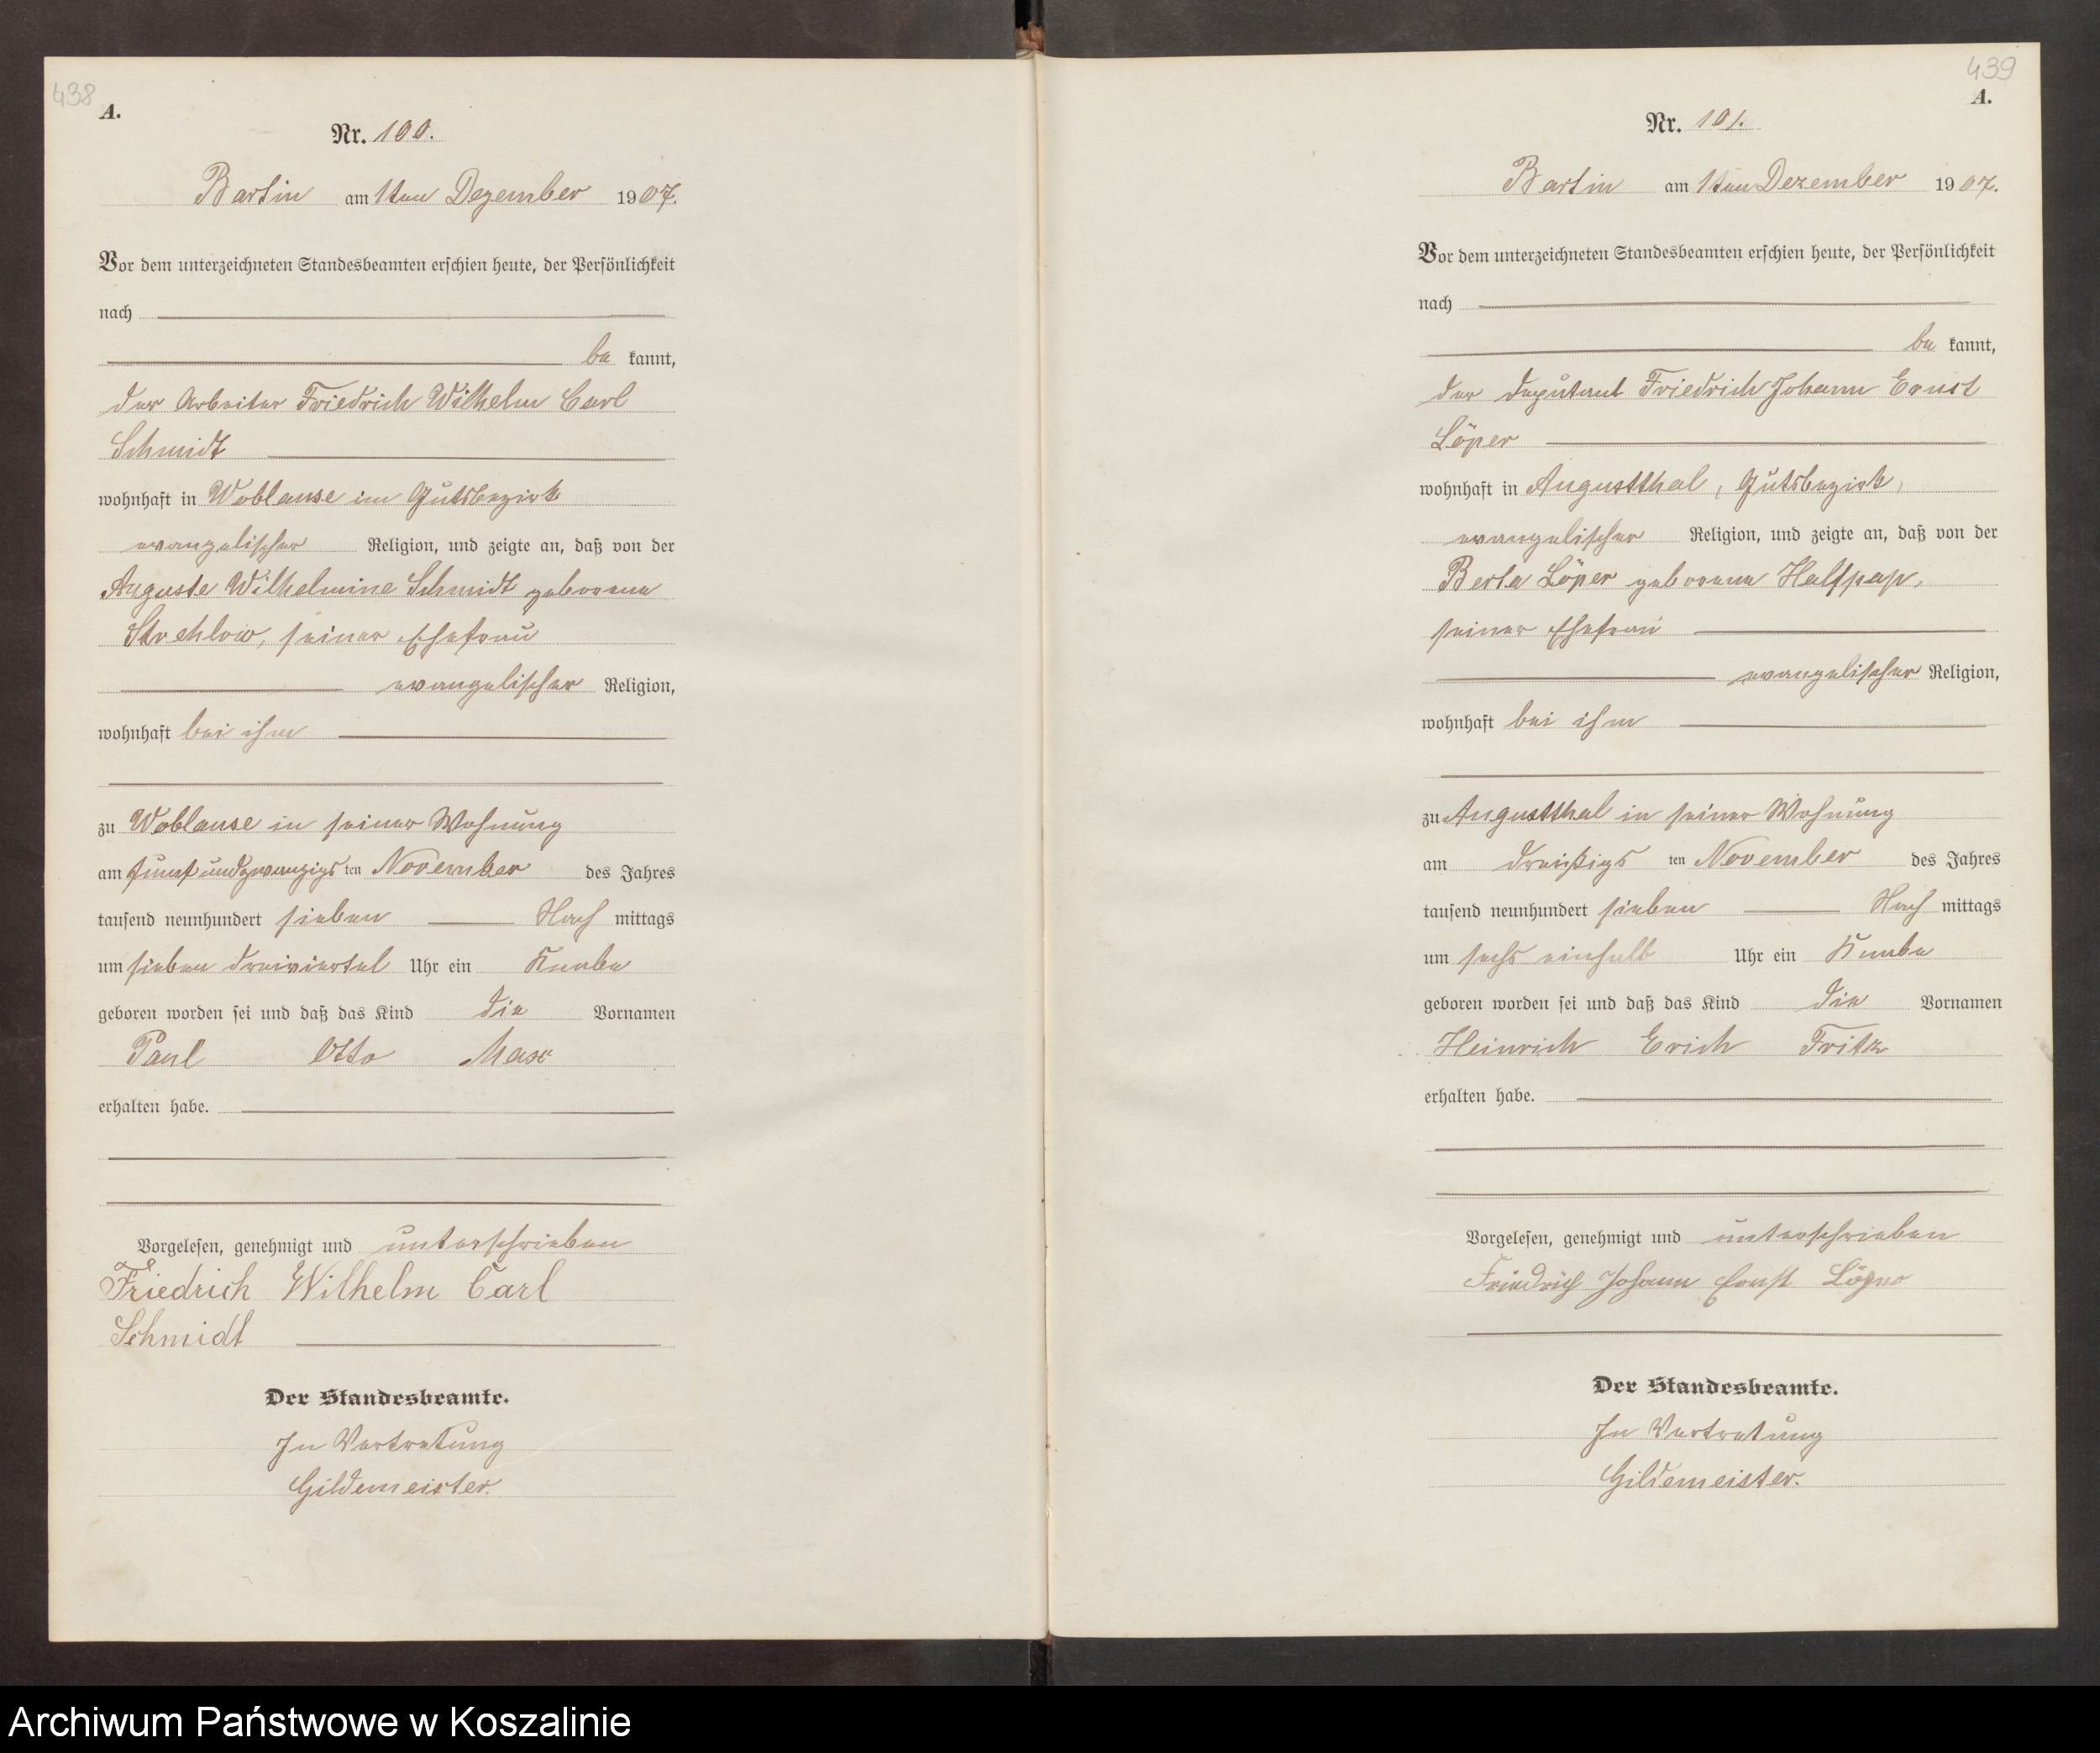 438
A.
Nr. 100.
Bartin am 1ten Dezember 1907.
Vor dem unterzeichneten Standesbeamten erschien heute, der Persönlichkeit
nach
be kannt,
der Arbeiter Friedrich Wilhelm Carl
Schmidt
wohnhaft in Woblanse im Gutsbezirk
evangelischer Religion, und zeigte an, daß von der
Auguste Wilhelmine Schmidt geborene
Strehlow, seiner Ehefrau
evangelischer Religion,
wohnhaft bei ihm
zu Woblanse in seiner Wohnung
am fünfundzwanzigs ten November des Jahres
tausend neunhundert sieben Nach mittags
um sieben dreiviertel Uhr ein Knabe
geboren worden sei und daß das Kind die Vornamen
Paul Otto Max
erhalten habe.
Vorgelesen, genehmigt und unterschrieben
Friedrich Wilhelm Carl
Schmidt
Der Standesbeamte.
In Vertretung
Gildemeister.
439
A.
Nr. 101.
Bartin am 1ten Dezember 1907.
Vor dem unterzeichneten Standesbeamten erschien heute, der Persönlichkeit
nach
be kannt,
der Deputant Friedrich Johann Ernst
Löper
wohnhaft in Augustthal, Gutsbezirk,
evangelischer Religion, und zeigte an, daß von der
Berta Löper geborene Halfpap,
seiner Ehefrau
evangelischer Religion,
wohnhaft bei ihm
zu Augustthal in seiner Wohnung
am dreißigs ten November des Jahres
tausend neunhundert sieben Nach mittags
um sechs einhalb Uhr ein Knabe
geboren worden sei und daß das Kind die Vornamen
Heinrich Erich Fritz
erhalten habe.
Vorgelesen, genehmigt und unterschrieben
Friedrich Johann Ernst Löper
Der Standesbeamte.
In Vertretung
Gildemeister.
Archiwum Państwowe w Koszalinie